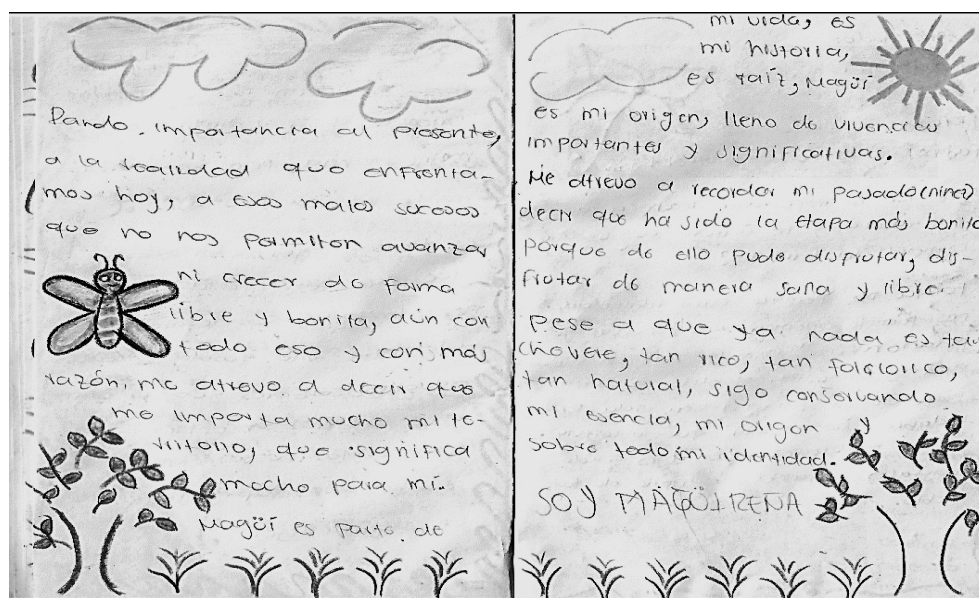 Dando importancia al presente,
a la realidad que enfrenta-
mos hoy, a esos malos sucesos
que no nos permiten avanzar
ni crecer de forma
libre y bonita, aún con
todo eso y con más
razón, me atrevo a decir que
me importa mucho mi te-
rritorio, que significa
mucho para mí.
Magüí es parte de
mi vida, es
mi historia,
es raíz, Magüí
es mi origen, lleno de vivencias
importantes y significativas.
Me atrevo a recordar mi pasado (niñez)
decir que ha sido la etapa más bonita
porque de ello pude disfrutar, dis-
frutar de manera sana y libre.
Pese a que ya nada es tan
chévere, tan rico, tan folclorico,
tan natural, sigo conservando
mi esencia, mi origen y
sobre todo mi identidad.
SOY MAGÜIREÑA